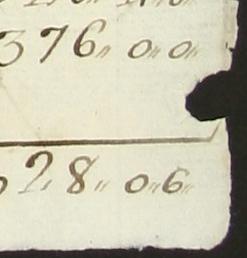 376" 0" 0"
28" 0" 6"